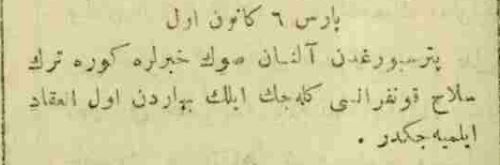 پارس ٦ كانون اول
پترسبورغدن آلنان صوك خبرلره كوره ترك
سلاح قونفرانسى كله‌جك ايلك بهاردن اول انعقاد
ايلميه‌جكدر .